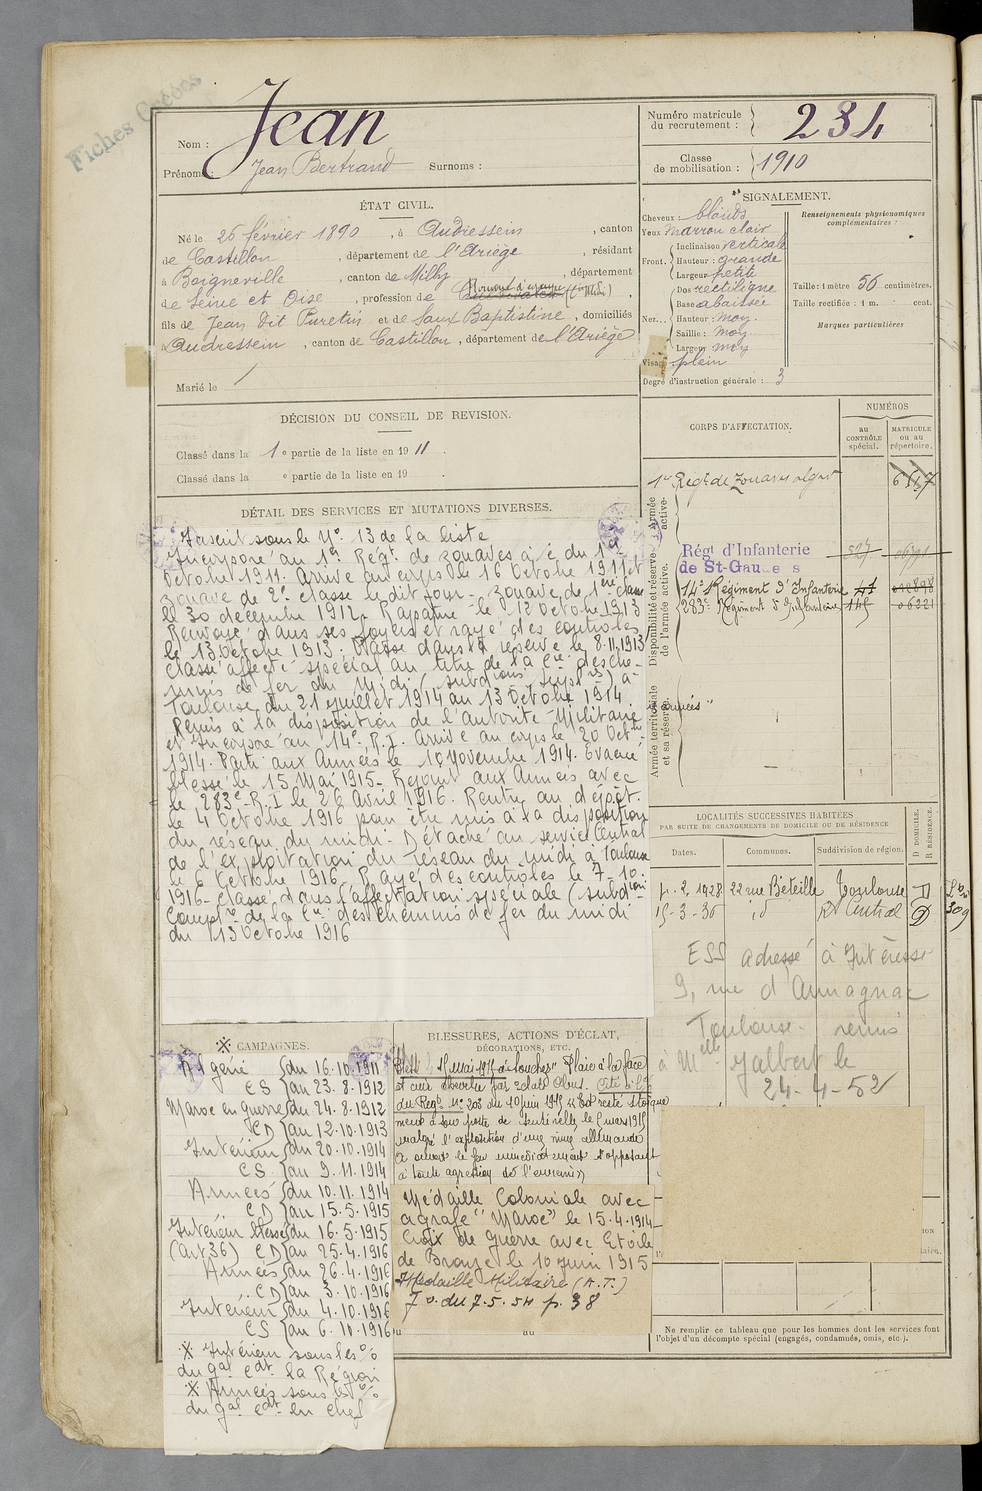 Fiches Créées
Nom : Jean
Prénoms : Jean Bertrand Surnoms :
Numéro matricule du recrutement : 234
Classe de mobilisation : 1910
ÉTAT CIVIL.
Né le 26 février 1890, à Audressein, canton
de Castillon, département de l'Ariège, résidant
à Boigneville, canton de Milly, département
de Seine et Oise, profession de Homme d'équipe (Midi),
fils de Jean Dit Puretin et de Saux Baptistine, domiciliés
à Audressein, canton de Castillon, département de l'Ariège
Marié le /
SIGNALEMENT.
Cheveux : blonds
Yeux marron clair
Front. Inclinaison verticale
Hauteur : grande
Largeur petite
Nez... Dos rectiligne
Base abaissée
Hauteur : moy.
Saillie : moy
Largeur moy
Visage plein
Degré d'instruction générale : 3
Renseignements physionomiques complémentaires :
Taille : 1 mètre 56 centimètres.
Taille rectifiée : 1 m. cent.
Marques particulières
DÉCISION DU CONSEIL DE REVISION.
Classé dans la 1e partie de la liste en 1911.
Classé dans la e partie de la liste en 19 .
CORPS D'AFFECTATION.
NUMÉROS
au CONTRÔLE spécial.
MATRICULE ou au répertoire.
Armée active.
1er Régt de Zouaves
Disponibilité et réserve de l'armée active.
Régt d'Infanterie
de St-Gaudens
14e Régiment d'Infanterie
283e Régiment d'Infanterie 145 06221
Armée territoriale et sa réserve.
DÉTAIL DES SERVICES ET MUTATIONS DIVERSES.
Inscrit sous le No 13 de la liste
Incorporé au 1er Régt de zouaves à c du 1er
Octobre 1911. Arrivé au corps le 16 Octobre 1911 et
zouave de 2e classe le dit jour. zouave de 1ère classe
le 30 décembre 1912. Rapatrié le 12 Octobre 1913
Renvoyé dans ses foyers et rayé des controles
le 13 Octobre 1913. Passé dans la réserve le 8.11.1913
Classé affecté spécial au titre de la Cie des che-
mins de fer du Midi (subdions ) à
Toulouse du 21 juillet 1914 au 13 Octobre 1914.
Remis à la disposition de l'autorité Militaire
et Incorporé au 14e R.I. Arrivé au corps le 20 Octobre
1914. Parti aux Armées le 10 Novembre 1914. Evacué
blessé le 15 Mai 1915. Rejoint aux Armées avec
le 283e R.I le 26 Avril 1916. Rentré au dépôt.
le 4 Octobre 1916 pour être mis à la disposition
du réseau du midi. Détaché au service Central
de l'exploitation du réseau du midi à Toulouse
le 6 Octobre 1916. Rayé des controles le 7-10-
1916. Classé dans l'affectation spéciale (subdion
Complre de la Cie des chemins de fer du midi
du 13 Octobre 1916
"armées"
LOCALITÉS SUCCESSIVES HABITÉES
PAR SUITE DE CHANGEMENTS DE DOMICILE OU DE RÉSIDENCE
Dates. Communes. Subdivision de région. D DOMICILE. R RÉSIDENCE.
2.1928 22 rue Béteille Toulouse D
15-3-36 id Rt Central D
309
ESS adressé à Intéressé
9, rue d'Armagnac
Toulouse. remis
à Melle Jalbert le
24-4-52
※ CAMPAGNES.
Algérie du 16.10.1911
CS au 23.8.1912
Maroc en guerre du 24.8.1912
CD au 12.10.1913
Intérieur du 20.10.1914
CS au 9.11.1914
Armées du 10.11.1914
CD au 15.5.1915
Intérieur blessé du 16.5.1915
(art 36) CD au 25.4.1916
Armées du 26.4.1916
CD au 3.10.1916
Intérieur du 4.10.1916
CS au 6.10.1916
※ Intérieur sous les o/o
du gal Cdt la Région
※ Armées sous les o/o
du gal Cdt en chef
BLESSURES, ACTIONS D'ÉCLAT,
DÉCORATIONS, ETC.
Blessé 15 mai 1915 à "Souchez" Plaie à la face
et aux par éclats Obus. Cité à l'O
du Régt No 203 du 10 juin 1915 "Est resté stoïque
ment à son poste de sentinelle le 6 mars 1915
malgré l'explosion d'une mine allemande
a ouvert le feu immédiatement s'opposant
à toute agression de l'ennemi"
Médaille Coloniale avec
agrafe "Maroc" le 15.4.1914
Croix de Guerre avec Etoile
de Bronze le 10 juin 1915
Médaille Militaire (A.T.)
J.O. du 7.5.54 p. 38
au
Ne remplir ce tableau que pour les hommes dont les services font
l'objet d'un décompte spécial (engagés, condamnés, omis, etc.).